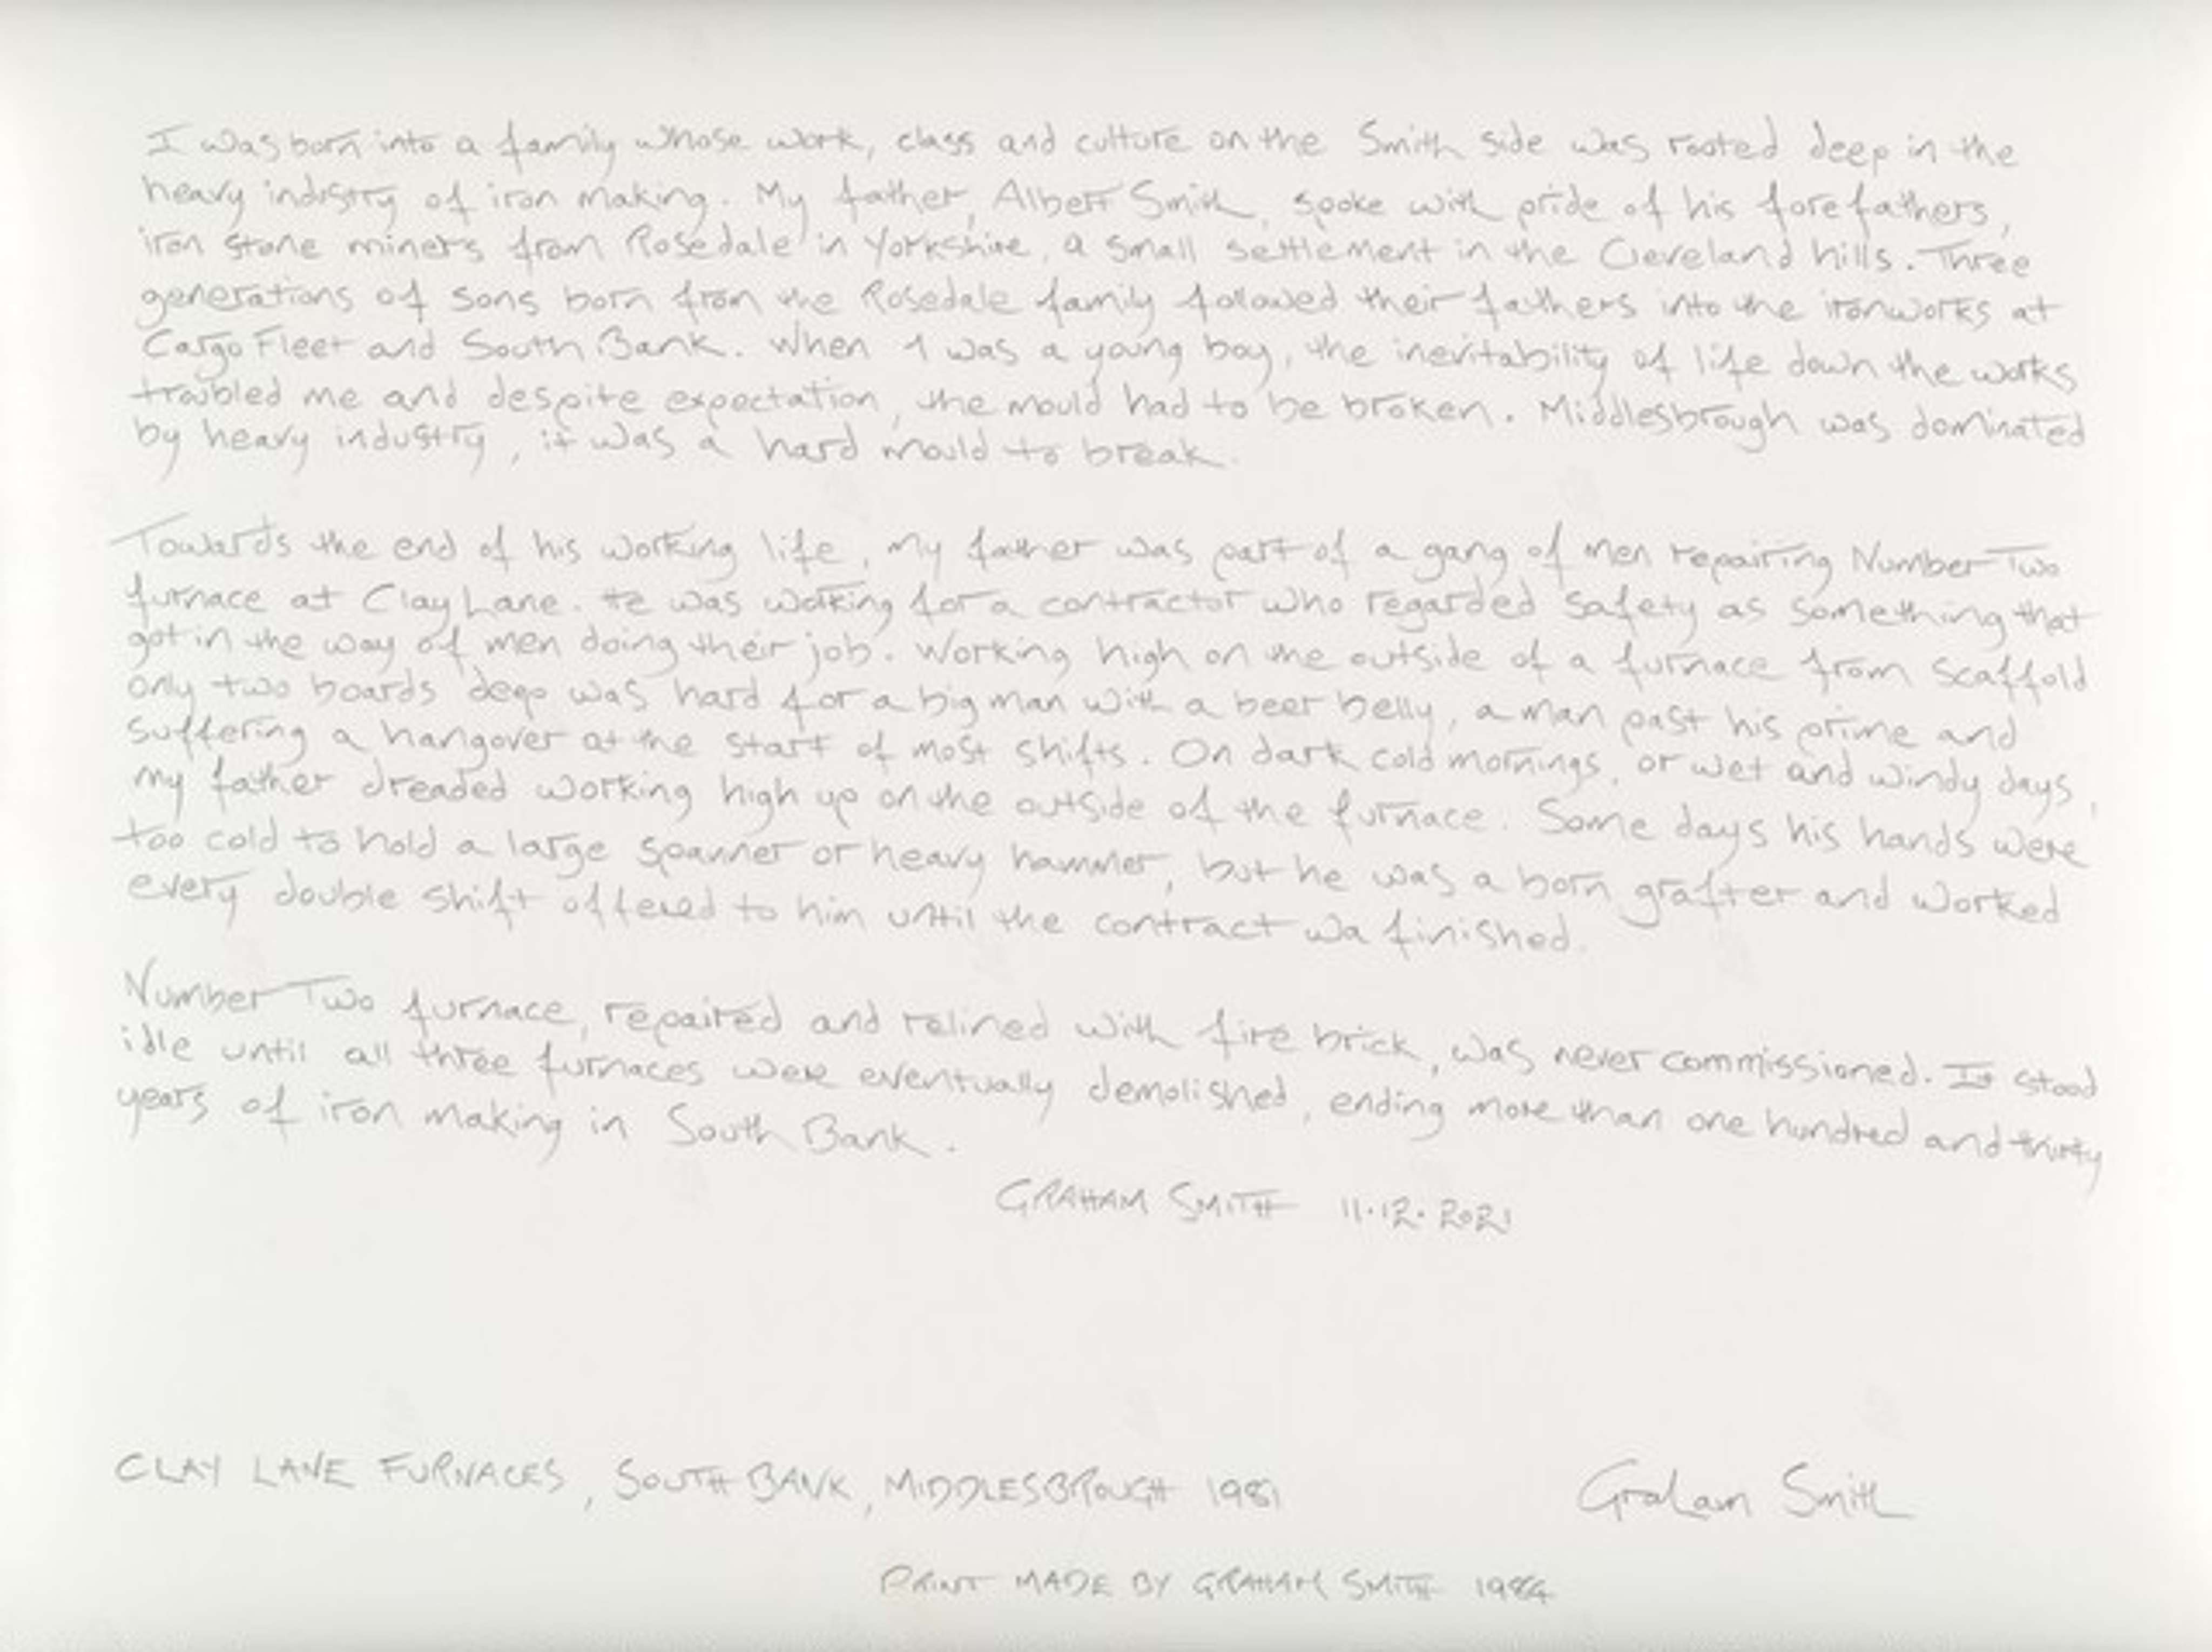 I was born into a family whose work, class and culture on the Smith side was rooted deep in the
heavy industry of iron making. My father, Albert Smith, spoke with pride of his forefathers,
iron stone miners from Rosedale in Yorkshire, a small settlement in the Cleveland hills. Three
generations of sons born from the Rosedale family followed their fathers into the ironworks at
Cargo Fleet and South Bank. When I was a young boy, the inevitability of life down the works
troubled me and despite expectation, the mould had to be broken. Middlesbrough was dominated
by heavy industry, it was a hard mould to break.
Towards the end of his working life, my father was part of a gang of men repairing Number Two
furnace at Clay Lane. He was working for a contractor who regarded safety as something that
got in the way of men doing their job. Working high on the outside of a furnace from scaffold
only two boards deep was hard for a big man with a beer belly, a man past his prime and
suffering a hangover at the start of most shifts. On dark cold mornings, or wet and windy days,
my father dreaded working high up on the outside of the furnace. Some days his hands were
too cold to hold a large spanner or heavy hammer, but he was a born grafter and worked
every double shift offered to him until the contract wa finished.
Number Two furnace, repaired and relined with fire brick, was never commissioned. It stood
idle until all three furnaces were eventually demolished, ending more than one hundred and thirty
years of iron making in South Bank.
GRAHAM SMITH 11.12.2021
CLAY LANE FURNACES, SOUTH BANK, MIDDLESBROUGH 1981
Graham Smith
PRINT MADE BY GRAHAM SMITH 1984